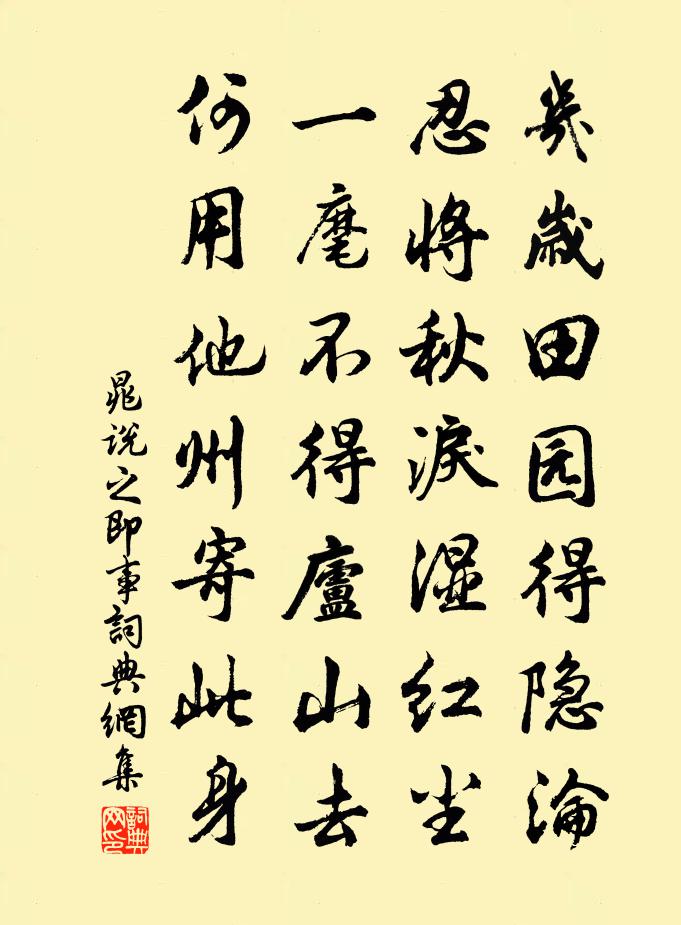 幾歲田园得隐淪
忍將秋淚湿红尘
一麾不得廬山去
何用他州寄此身
晁说之即事詞典網集
詞典網印